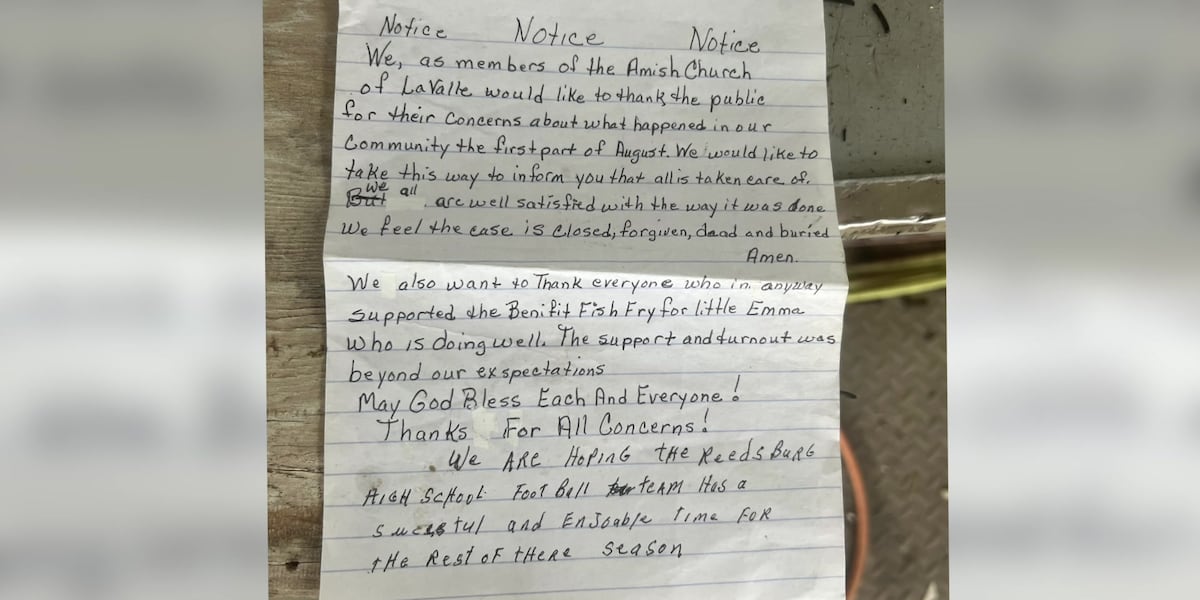 Notice Notice Notice
We, as members of the Amish Church
of LaValle would like to thank the public
for their Concerns about what happened in our
Community the first part of August. We would like to
take this way to inform you that all is taken care of.
But we all are well satisfied with the way it was done
We feel the case is closed, forgiven, dead and buried
Amen.
We also want to Thank everyone who in anyway
supported the Benifit Fish Fry for little Emma
who is doing well. The support and turnout was
beyond our exspectations
May God Bless Each And Everyone!
Thanks For All Concerns!
We ARE HoPiNG tHE ReedsBuRG
HIGH SCHOOL FOOT BAll tEAM HAS a
SucessTul and ENJoAble Time FOR
tHE REST OF tHERE SEASON